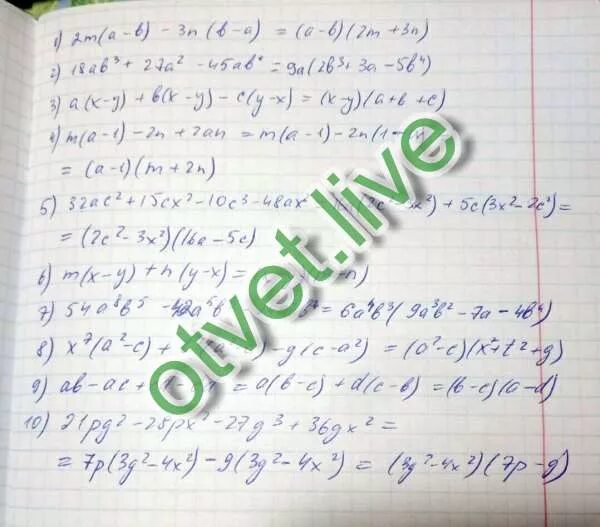 1) 2m(a-b) - 3n(b-a) = (a-b)(2m+3n)
2) 18ab³ + 27a² - 45ab⁴ = 9a(2b³+3a-5b⁴)
3) a(x-y) + b(x-y) - c(y-x) = (x-y)(a+b+c)
4) m(a-1) - 2n + 2an = m(a-1) - 2n(1-
= (a-1)(m+2n)
5) 32ac² + 15cx² - 10c³ - 48ax² ²) + 5c(3x²-2c²) =
= (2c²-3x²)(16a-5c)
6) m(x-y) + n(y-x) = n)
7) 54a⁸b⁵ - 42a⁵b = 6a⁴b³(9a³b²-7a-4b⁴)
8) x⁷(a²-c) + - g(c-a²) = (a²-c)(x⁷+t²+g)
9) ab-ac + = a(b-c) + d(c-b) = (b-c)(a-d)
10) 21pg² - 28px² - 27g³ + 36gx² =
= 7p(3g²-4x²) - 9(3g²-4x²) = (3g²-4x²)(7p-g)
otvet.live